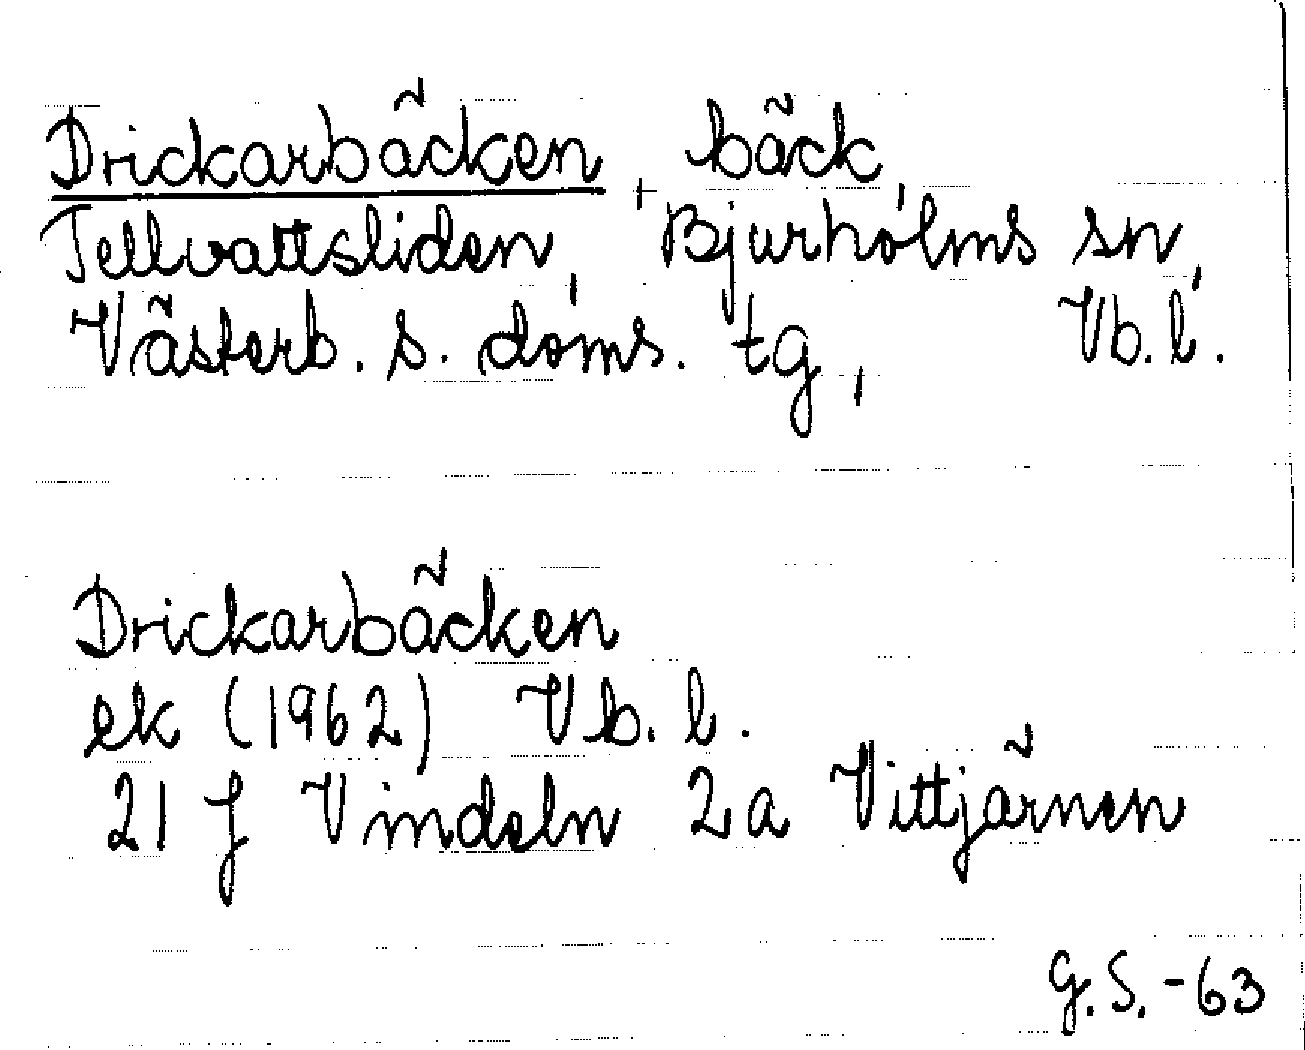 Drickarbäcken, bäck,
Tellvattsliden, Bjurholms sn,
Västerb. s. doms. tg, Vb. l.
Drickarbäcken
ek (1962) Vb. l.
21 J Vindeln 2a Vittjärnen
G.S.-63